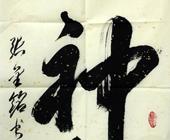 神
张金铭书